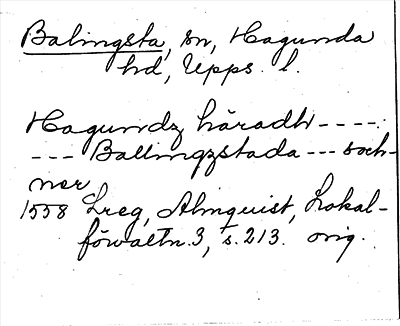 Balingsta, sn, Hagunda
hd, Upps. l.
Hagundz häradh ----
--- Ballingzstada --- soch-
ner
1558 Lreg, Almquist, Lokal-
förvaltn. 3, s. 213. orig.